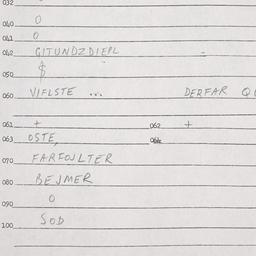 032
040 0
041 0
042 GITUNDZDIEPL =
$
050
060 VIFLSTE ... DERFAR
061 + 062 +
063 OSTE,
070 FARFOJLTER
080 BEJMER
090 0
100 SOD